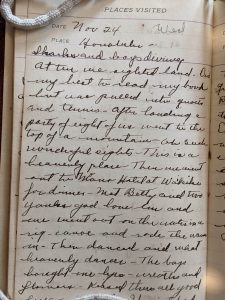 PLACES VISITED
DATE Nov 24 Wed
PLACE Honolulu -
Sharks and boys diving.
After we sighted land. Did
my best to read my book
but was pulled into quoits
and tennis. After landing a
party of eight of us went to the
top of a mountain - oh such
wonderful sight - This is a
heavenly place. Then we went
out to Hotel Waikiki
for dinner. Met Betty and two
Yanks and
we went out on the water in a
canoe and rode the waves
in - Then danced and what
heavenly dances - The boys
bought me leys - wreaths and
flowers - are good